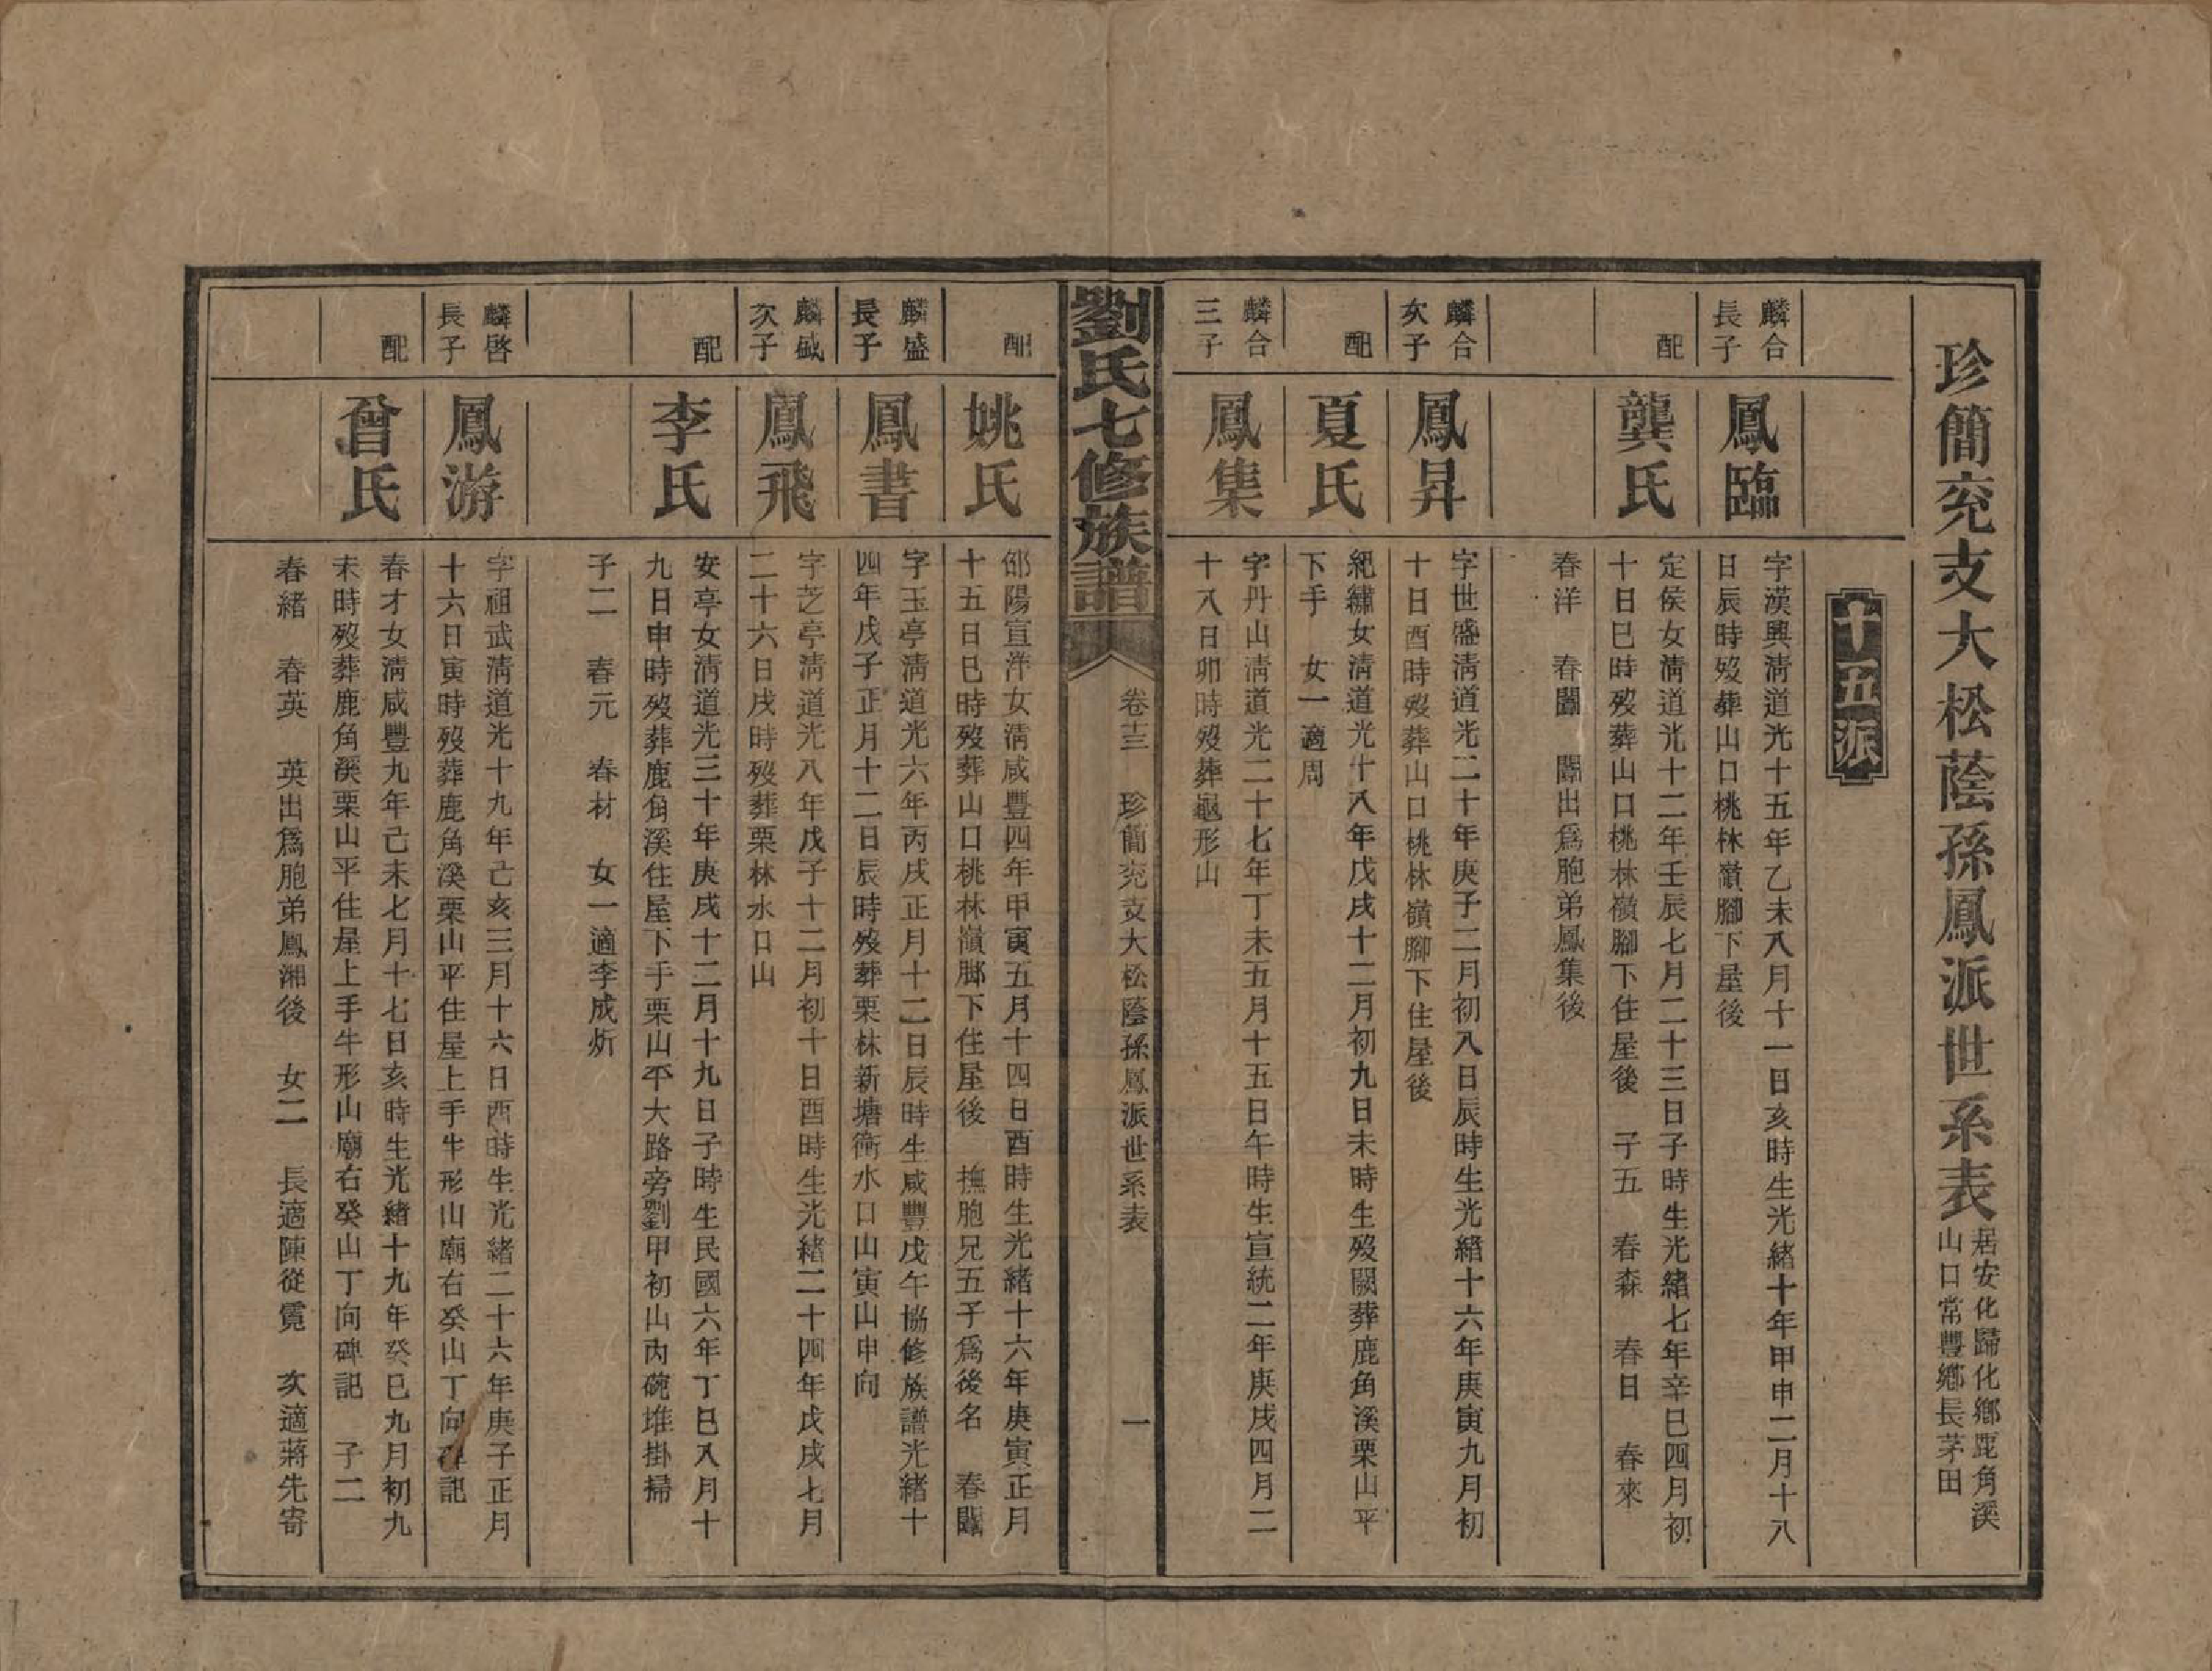 珍簡兖支大松蔭孫鳳派世系表
居安化歸化鄉鹿角溪
山口常豐鄉長茅田
十五派
麟合
長子
鳳臨
字漢興清道光十五年乙未八月十一日亥時生光緒十年甲申二月十八
日辰時歿葬山口桃林嶺腳下屋後
配
龔氏
定侯女清道光十二年壬辰七月二十三日子時生光緒七年辛巳四月初
十日巳時歿葬山口桃林嶺腳下住屋後 子五 春森 春日 春來
春洋 春闓 闓出爲胞弟鳳集後
麟合
次子
鳳昇
字世盛清道光二十年庚子二月初八日辰時生光緒十六年庚寅九月初
十日酉時歿葬山口桃林嶺腳下住屋後
配
夏氏
紀繡女清道光十八年戊戌十二月初九日未時生歿闕葬鹿角溪栗山平
下手 女一適周
麟合
三子
鳳集
字丹山清道光二十七年丁未五月十五日午時生宣統二年庚戌四月二
十八日卯時歿葬龜形山
劉氏七修族譜
卷十三 珍簡兖支大松蔭孫鳳派世系表 一
配
姚氏
邵陽宣洋女清咸豐四年甲寅五月十四日酉時生光緒十六年庚寅正月
十五日巳時歿葬山口桃林嶺腳下住屋後 撫胞兄五子爲後名 春闓
麟盛
長子
鳳書
字玉亭清道光六年丙戌正月十二日辰時生咸豐戊午協修族譜光緒十
四年戊子正月十二日辰時歿葬栗林新塘衝水口山寅山申向
麟盛
次子
鳳飛
字芝亭清道光八年戊子十二月初十日酉時生光緒二十四年戊戌七月
二十六日戌時歿葬栗林水口山
配
李氏
安亭女清道光三十年庚戌十二月十九日子時生民國六年丁巳八月十
九日申時歿葬鹿角溪住屋下手栗山平大路旁劉甲初山內碗堆掛掃
子二 春元 春材 女一適李成炘
麟啓
長子
鳳游
字祖武清道光十九年己亥三月十六日酉時生光緒二十六年庚子正月
十六日寅時歿葬鹿角溪栗山平住屋上手牛形山廟右癸山丁向碑記
配
曾氏
春才女清咸豐九年己未七月十七日亥時生光緒十九年癸巳九月初九
未時歿葬鹿角溪栗山平住屋上手牛形山廟右癸山丁向碑記 子二
春緒 春英 英出爲胞弟鳳湘後 女二 長適陳從霓 次適蔣先寄